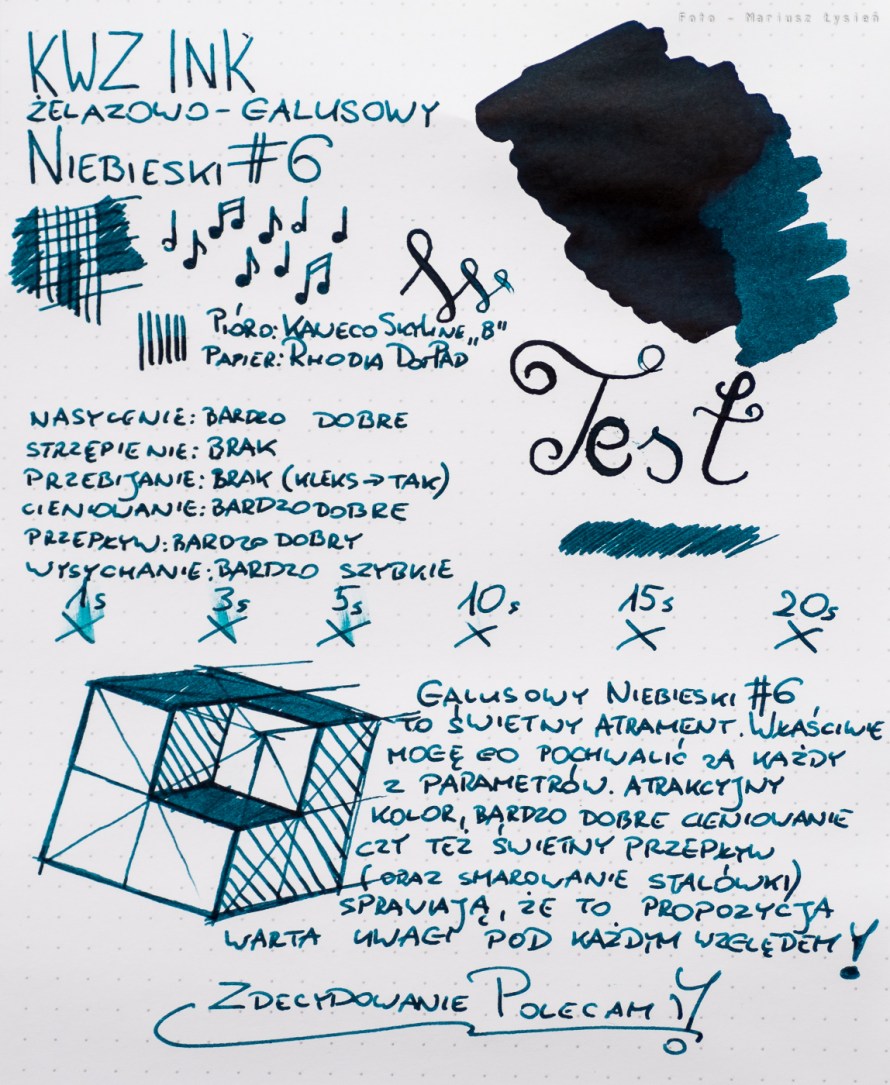 Foto - Mariusz Łysień
KWZ INK
ŻELAZOWO-GALUSOWY
NIEBIESKI #6
PIÓRO: KAWECO SKYLINE „B"
PAPIER: RHODIA DOTPAD
Test
NASYCENIE: BARDZO DOBRE
STRZĘPIENIE: BRAK
PRZEBIJANIE: BRAK (KLEKS → TAK)
CIENIOWANIE: BARDZO DOBRE
PRZEPŁYW: BARDZO DOBRY
WYSYCHANIE: BARDZO SZYBKIE
1s 3s 5s 10s 15s 20s
GALUSOWY NIEBIESKI #6
TO ŚWIETNY ATRAMENT. WŁAŚCIWIE
MOGĘ GO POCHWALIĆ ZA KAŻDY
Z PARAMETRÓW. ATRAKCYJNY
KOLOR, BARDZO DOBRE CIENIOWANIE
CZY TEŻ ŚWIETNY PRZEPŁYW
(ORAZ SMAROWANIE STALÓWKI)
SPRAWIAJĄ, ŻE TO PROPOZYCJA
WARTA UWAGI POD KAŻDYM WZGLĘDEM!
ZDECYDOWANIE POLECAM!